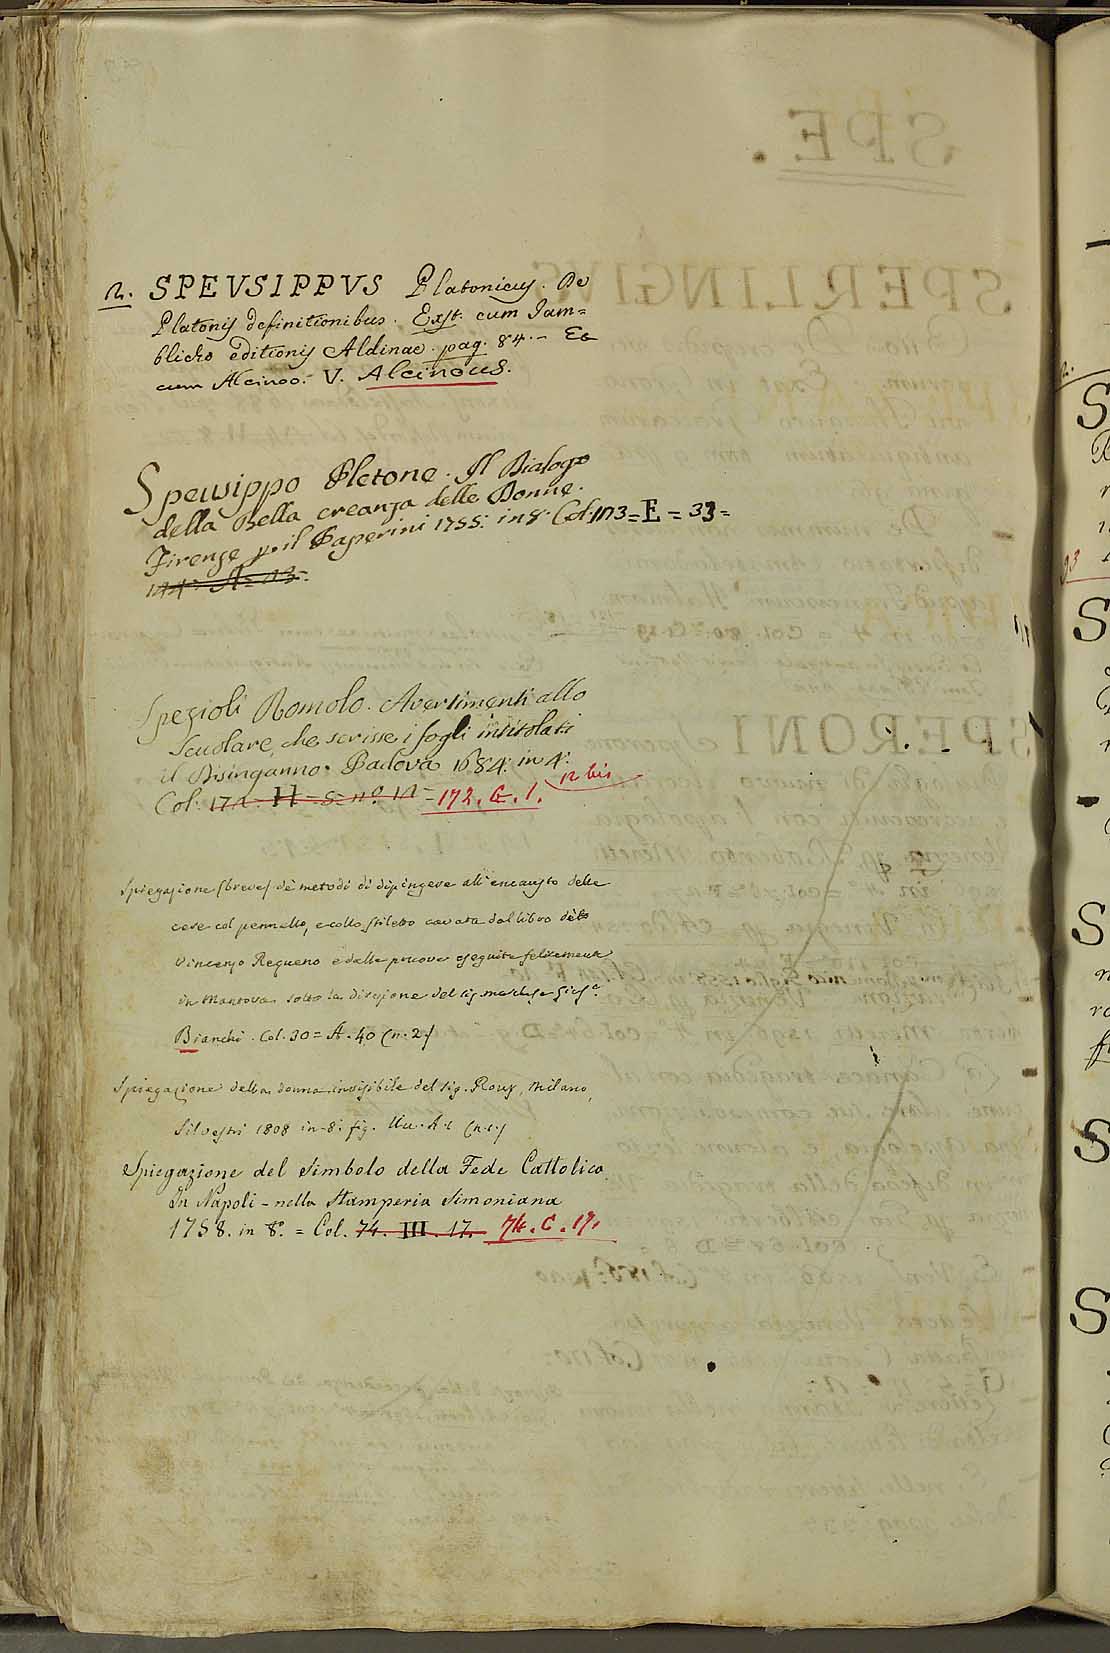 2. SPEVSIPPVS Platonicus. De
Platonis definitionibus. Exst. cum Jam=
blicho editionis Aldinae. pag. 84. - Et
cum Alcinoo. V. Alcinous.
Speusippo Pletone. Il Dialogo
della Bella creanza delle Donne.
Firenze p. il Paperini 1755. in 8. Col. 173 = E = 33 =
Spezioli Romolo. Avertimenti allo
Scuolare, che scrisse i fogli intitolati
il Disinganno. Padova 1684. in 4.
12 bis
Col. 172. G. 1.
Spiegazione (breve) de metodi di dipingere all'encausto delle
cere col pennello, e collo stiletto cavata dal libro dell'
Vincenzo Requeno e dalle pruove eseguite felicemente
in Mantova sotto la direzione del sig. marchese Gius.e
Bianchi. Col. 30 = A. 40 (n. 2.)
Spiegazione della donna invisibile del sig. Rouy, Milano,
Silvestri 1808 in-8. fig.
Spiegazione del Simbolo della Fede Cattolica
In Napoli - nella Stamperia Simoniana
1758. in 8.o = Col. 74. III. 17. 74. C. 17.